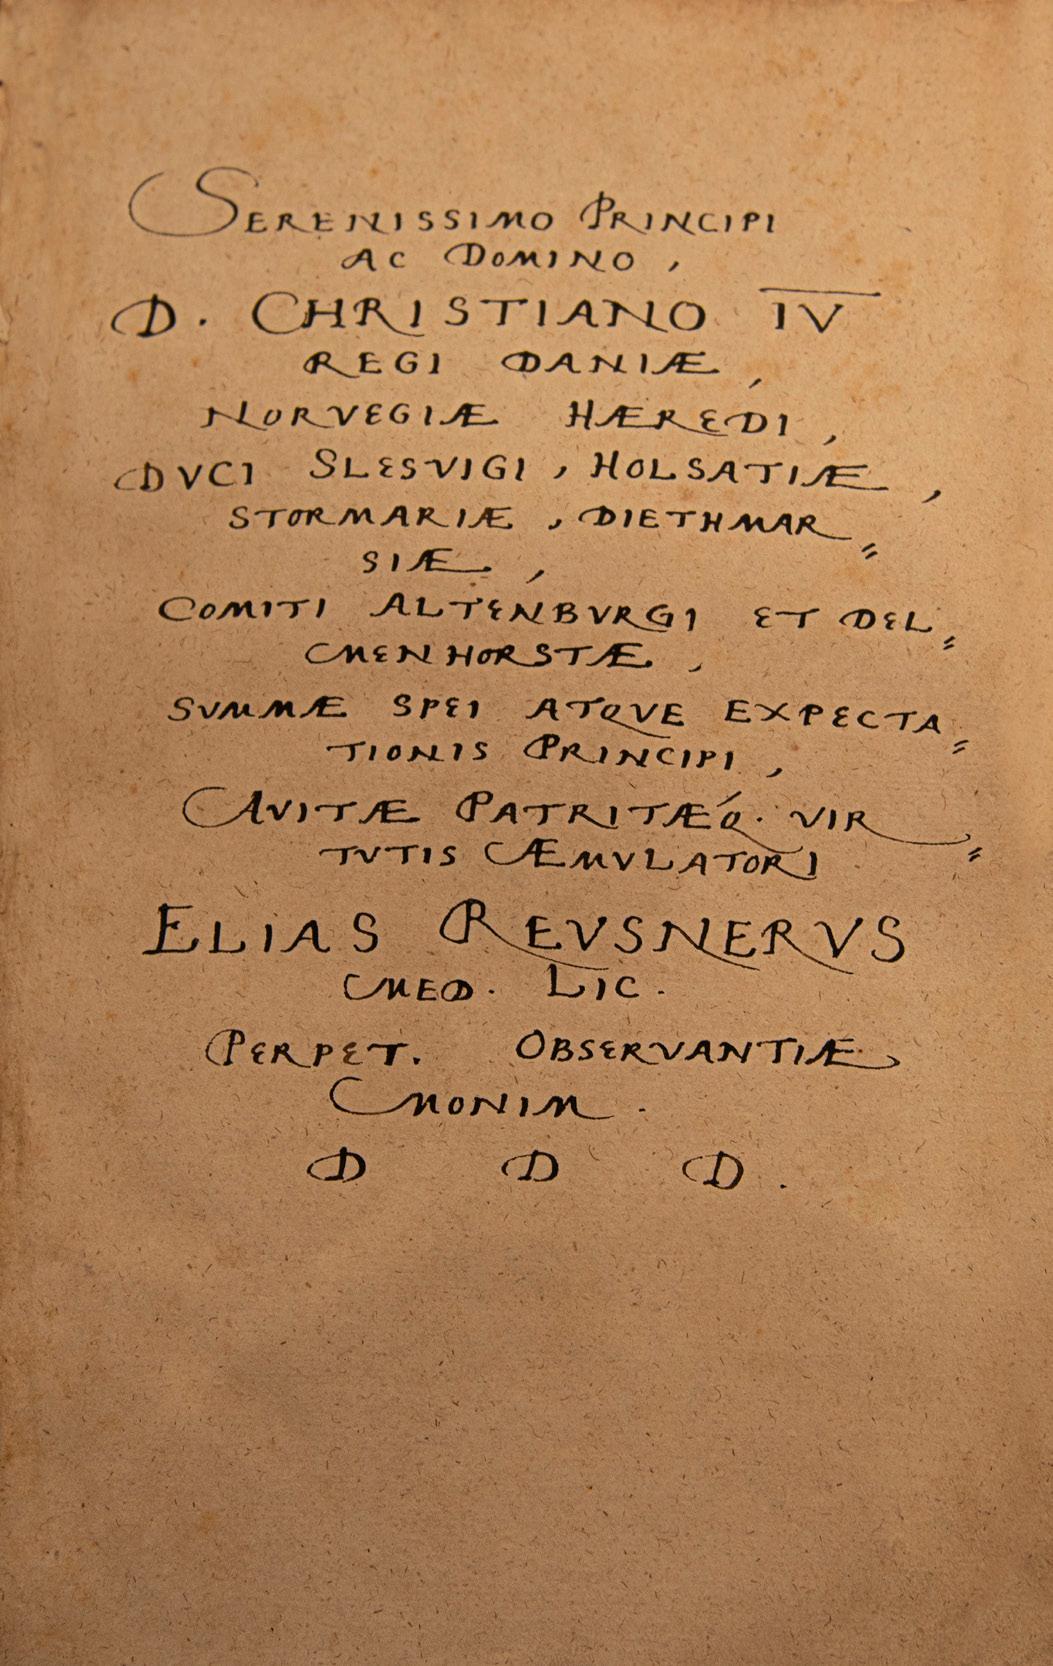 SERENISSIMO PRINCIPI
AC DOMINO,
D. CHRISTIANO IV
REGI DANIÆ,
NORVEGIÆ HÆREDI,
DVCI SLESVIGI, HOLSATIÆ,
STORMARIÆ, DIETHMAR=
SIÆ,
COMITI ALTENBVRGI ET DEL=
MENHORSTÆ,
SVMMÆ SPEI ATQVE EXPECTA=
TIONIS PRINCIPI,
AVITÆ PATRITÆQ. VIR=
TVTIS ÆMVLATORI
ELIAS REVSNERVS
MED. LIC.
PERPET. OBSERVANTIÆ
MONIM.
D D D.